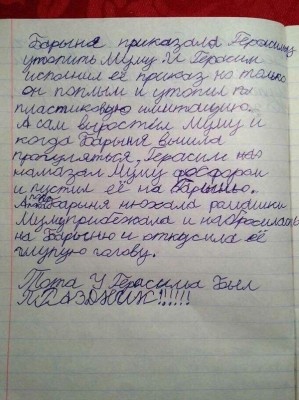 Барыня приказала Герасиму
утопить Муму И Герасим
исполнил её приказ но только
он поплыл и утопил
пластиковую имитацию.
А сам вырастил Муму и
когда Барыня вышла
прогуляться, Герасим
намазал Муму фосфором
и пустил её на Барыню.
Барыня нюхала ромашки
Муму прибежала и набросилась
на Барыню и откусила её
глупую голову.
Тота У Герасима Был
ПРАЗДНИК!!!!!!